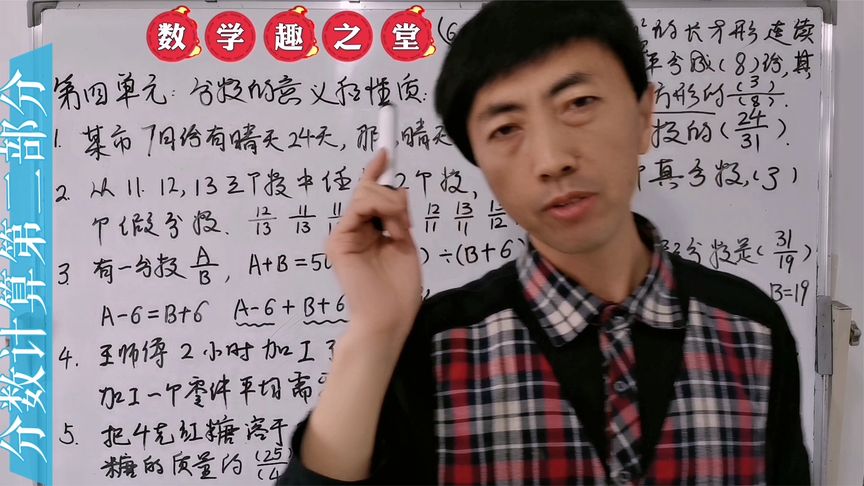 数学趣之堂
分数计算第二部分
第四单元:分数的意义和性质:
(6
²的长方形连续
平均分成(8)份,其
方形的(3)/(8).
1. 某市7月份有晴天24天,那 晴天
数的(24/31).
2. 从11.12,13三个数中任 2个数,
个真分数,(3)
个假分数. 12/13 11/13 11 12/11 13/11 13/12
3. 有一分数A/B, A+B=50 )÷(B+6)
分数是(31/19)
A-6=B+6 A-6+B+6
B=19
4. 王师傅2小时加工
加工一个零件平均需
5. 把4克红糖溶于
糖的质量的(25)